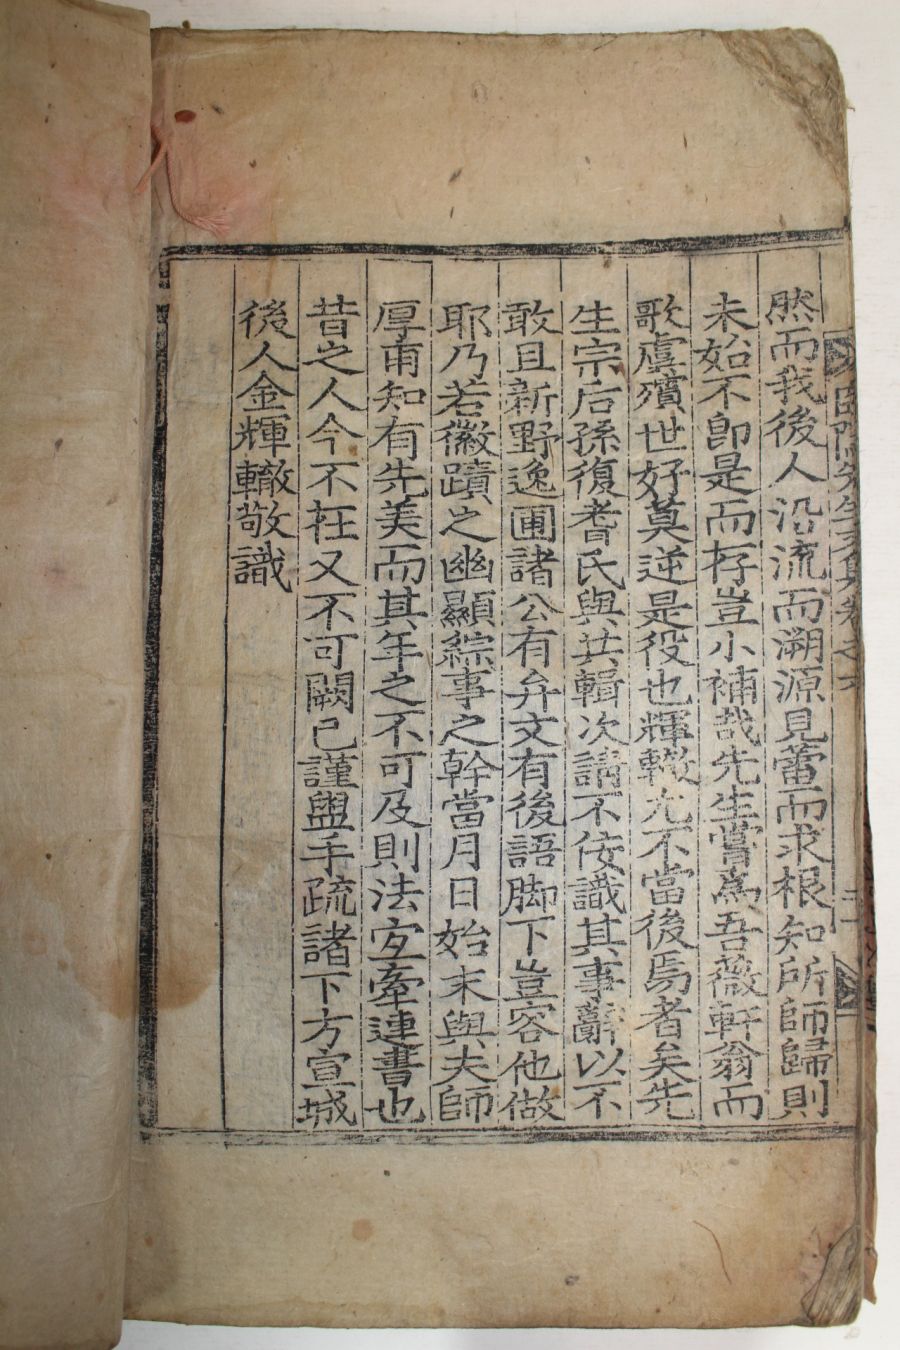 臥隱先生文集卷之六
然而我後人沿流而溯源見蕾而求根知所師歸則
未始不卽是而存豈小補哉先生嘗爲吾薇軒翁而
歌虞殯世好莫逆是役也輝轍尤不當後焉者矣先
生宗后孫復耆氏與共輯次請不侫識其事辭以不
敢且新野逸圃諸公有弁文有後語脚下豈容他做
耶乃若徽蹟之幽顯綜事之幹當月日始末與夫師
厚甫知有先美而其年之不可及則法宜牽連書也
昔之人今不在又不可闕已謹盥手疏諸下方宣城
後人金輝轍敬識